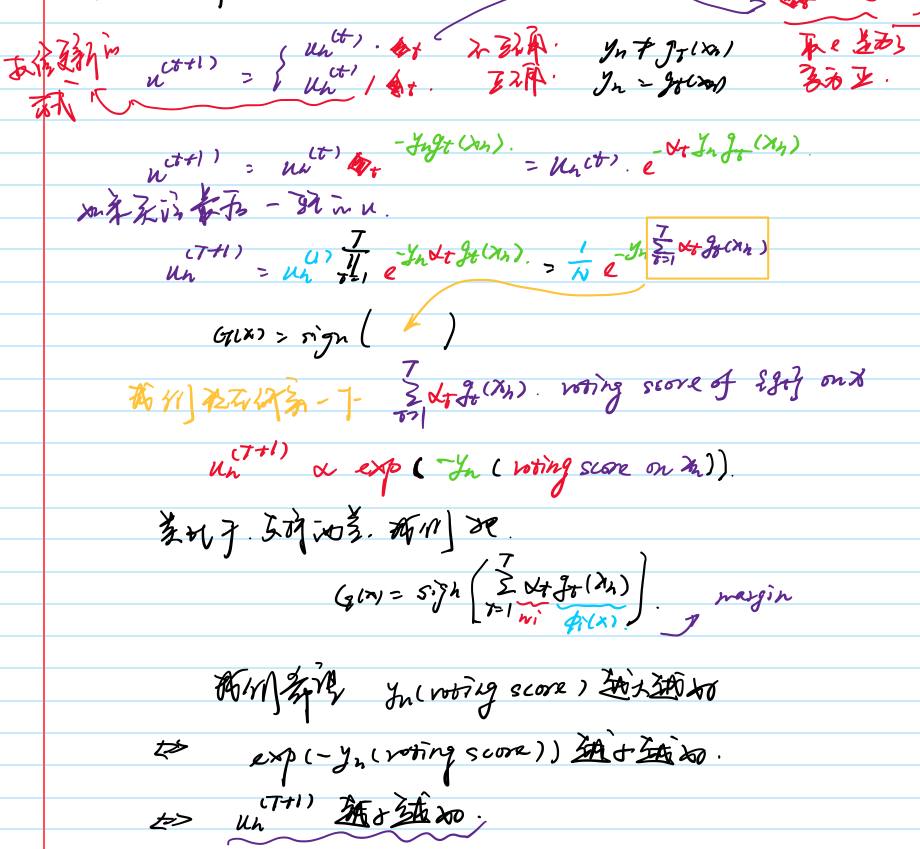 权值更新的 方式
u^{(t+1)} = { u_n^{(t)} · ◆_t 不正确. y_n ≠ g_t(x_n)
u_n^{(t)} / ◆_t. 正确. y_n = g_t(x_n)
取 e 是为了 变为正.
u_n^{(t+1)} = u_n^{(t)} ◆_t^{-y_n g_t(x_n)}. = u_n^{(t)}. e^{-α_t y_n g_t(x_n)}.
如果关注最后一轮的 u.
u_n^{(T+1)} = u_n^{(1)} ∏_{t=1}^{T} e^{-y_n α_t g_t(x_n)}. = 1/N e^{-y_n ∑_{t=1}^{T} α_t g_t(x_n)}
G(x) = sign ( )
我们现在研究一下 ∑_{t=1}^{T} α_t g_t(x_n). voting score of {g_t} on x
u_n^{(T+1)} ∝ exp ( -y_n ( voting score on x_n )).
类比于. 我们把.
G(x) = sign [ ∑_{t=1}^{T} α_t g_t(x_n) ]. margin
w_i φ_i(x).
我们希望 y_n (voting score) 越大越好
⇔ exp(-y_n (voting score)) 越小越好.
⇔ u_n^{(T+1)} 越小越好.